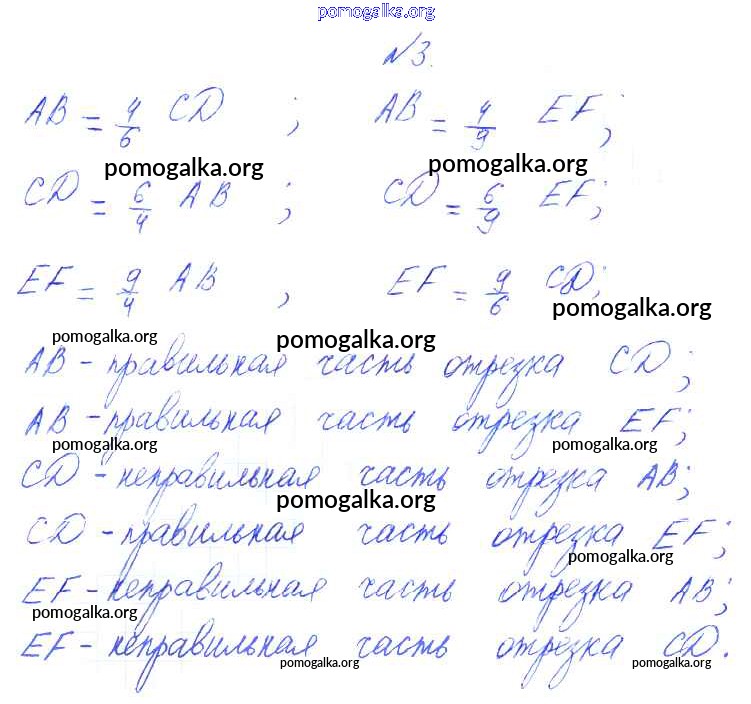 pomogalka.org
№3.
AB = 4/6 CD ; AB = 4/9 EF;
pomogalka.org pomogalka.org
CD = 6/4 AB ; CD = 6/9 EF;
EF = 9/4 AB , EF = 9/6 CD;
pomogalka.org
pomogalka.org pomogalka.org
AB - правильная часть отрезка CD;
AB - правильная часть отрезка EF;
pomogalka.org pomogalka.org
CD - неправильная часть отрезка AB;
pomogalka.org
CD - правильная часть отрезка EF;
pomogalka.org
EF - неправильная часть отрезка AB;
pomogalka.org
EF - неправильная часть отрезка CD.
pomogalka.org pomogalka.org